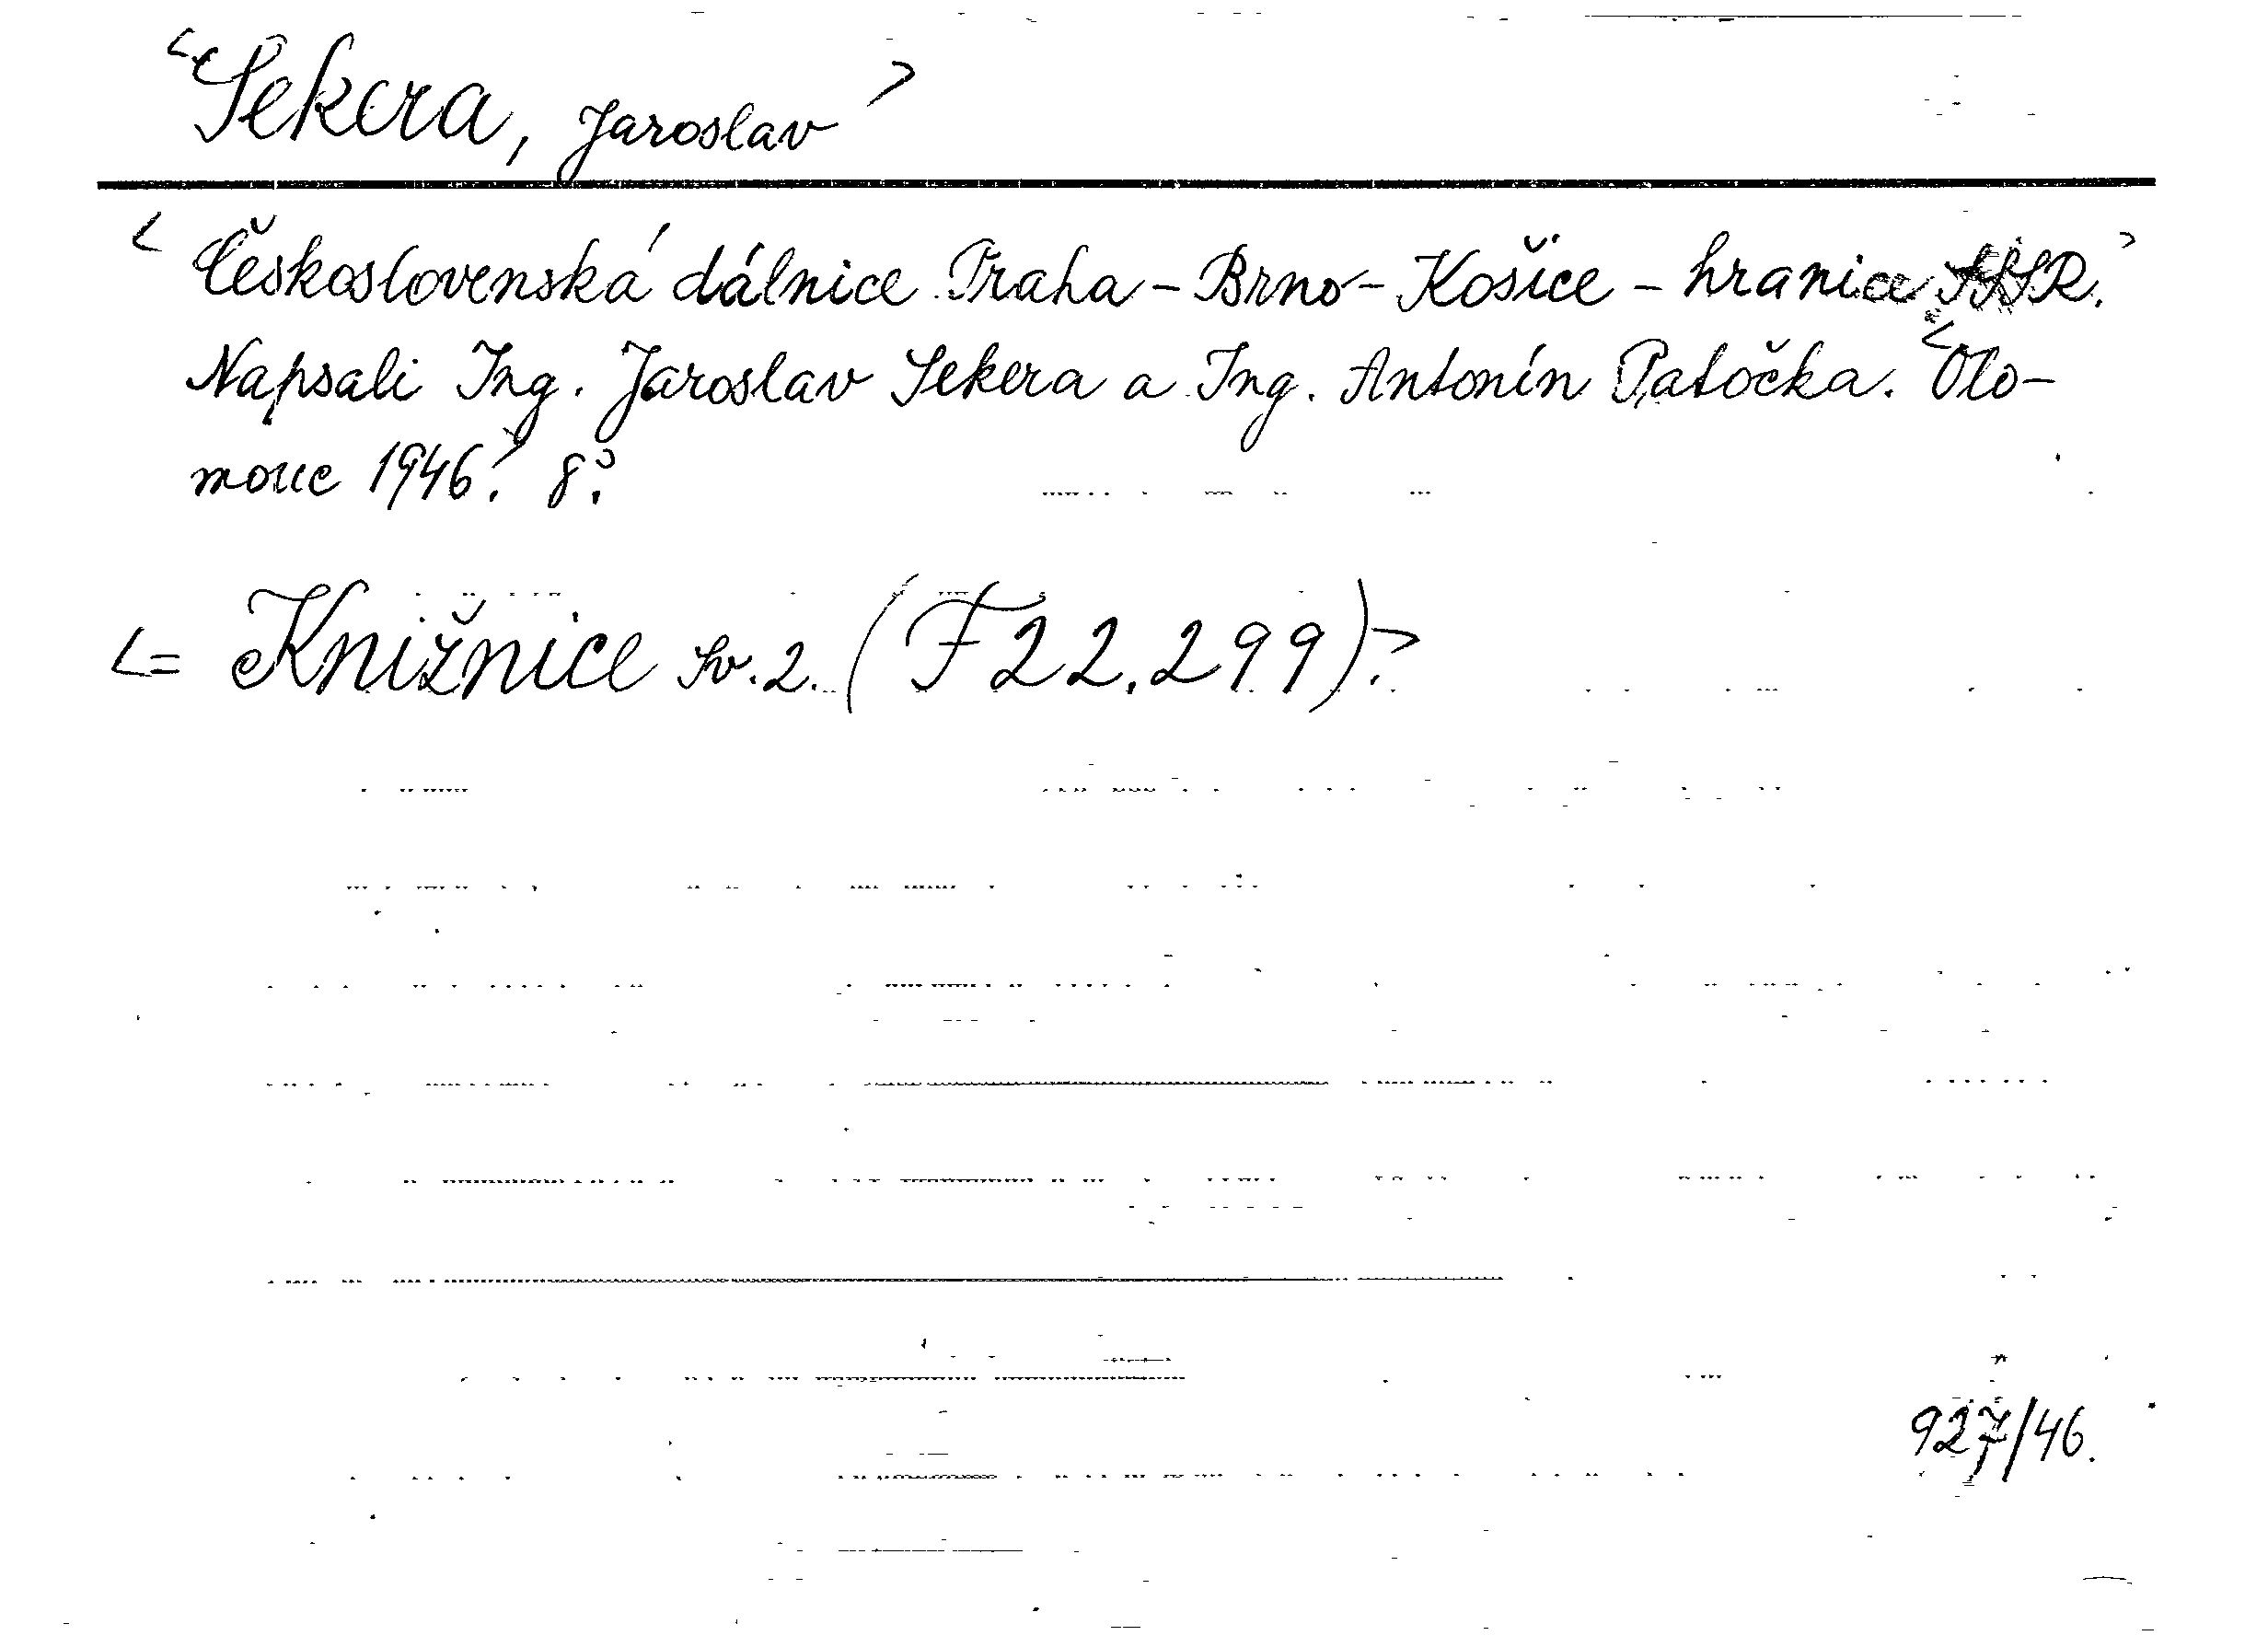 <Sekera, Jaroslav>
<Československá dálnice Praha - Brno - Košice - hranice SSSR.>
Napsali Ing. Jaroslav Sekera a Ing. Antonín Patočka. <Olo-
mouc 1946>. 8°.
<= Knižnice sv. 2. (F 22.299)>.
927/46.